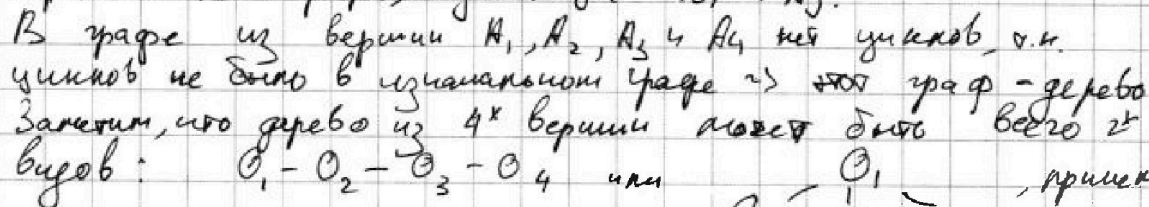 В графе из вершин A₁, A₂, A₃ и A₄ нет циклов, т.к.
циклов не было в изначальном графе => этот граф - дерево
Заметим, что дерево из 4ˣ вершин может быть всего 2ˣ
видов: O₁ - O₂ - O₃ - O₄ или O₁ , причем